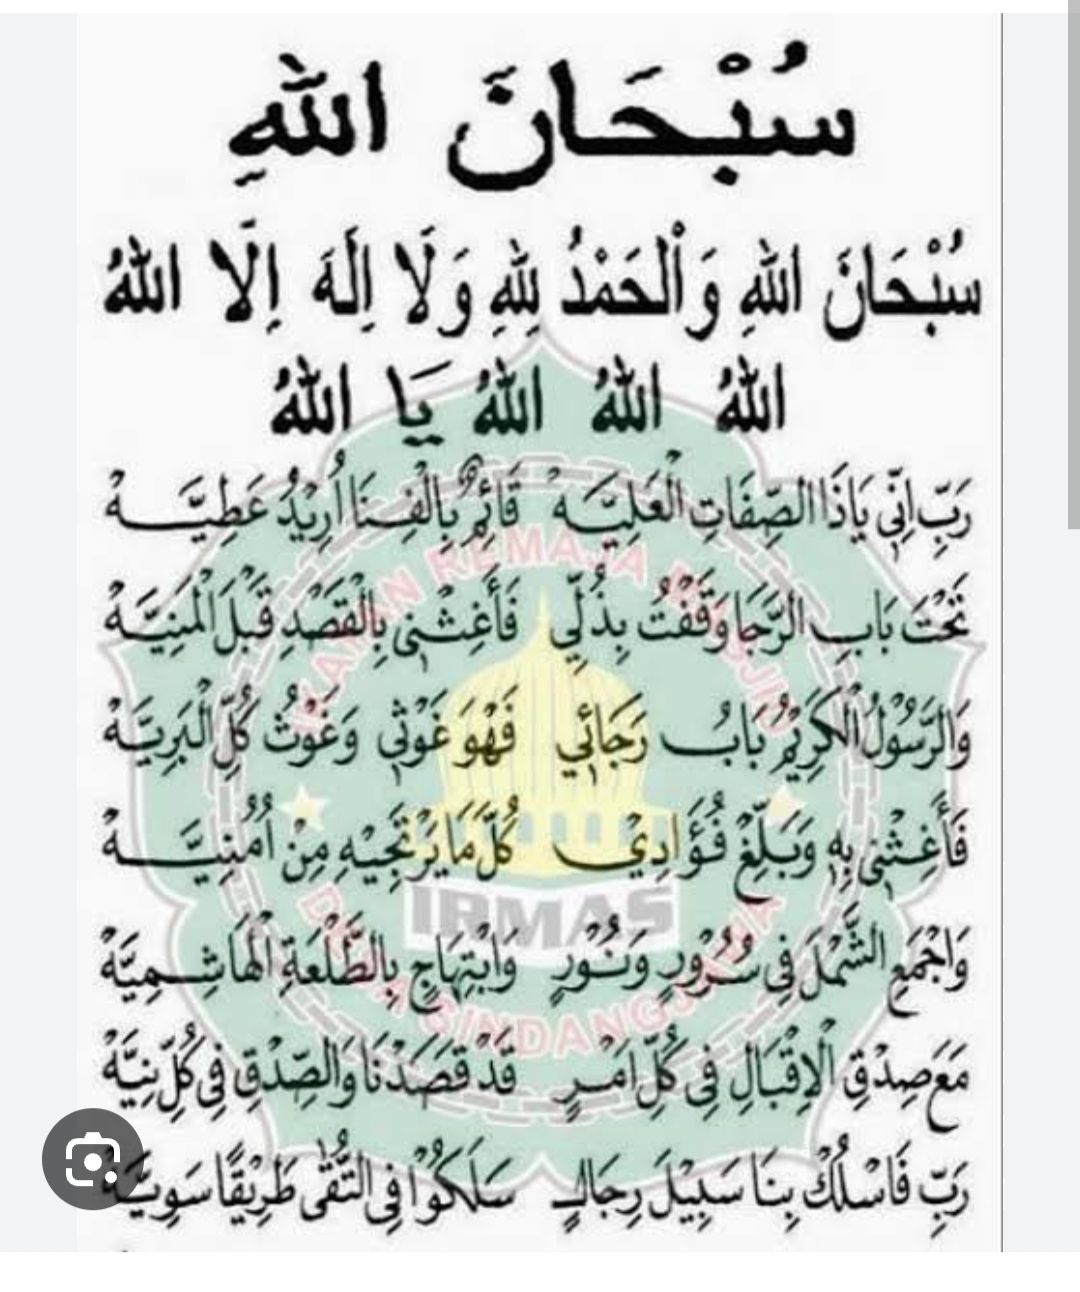 سُبْحَانَ اللهِ
سُبْحَانَ اللهِ وَالْحَمْدُ لِلهِ وَلَا اِلَهَ اِلَّا اللهُ
اللهُ اللهُ اللهُ يَا اللهُ
رَبِّ اِنِّي يَاذَا الصِّفَاتِ الْعَلِيَّهْ قَائِمٌ بِالْفِنَا اُرِيْدُ عَطِيَّهْ
تَحْتَ بَابِ الرَّجَا وَقَفْتُ بِذُلِّي فَأَغِثْنِي بِالْقَصْدِ قَبْلَ الْمَنِيَّهْ
وَالرَّسُوْلُ الْكَرِيْمُ بَابُ رَجَائِي فَهْوَ غَوْثِي وَغَوْثُ كُلِّ الْبَرِيَّهْ
فَأَغِثْنِي بِهِ وَبَلِّغْ فُؤَادِيْ كُلَّ مَا يَرْتَجِيْهِ مِنْ اُمْنِيَّهْ
وَاجْمَعِ الشَّمْلَ فِي سُرُوْرٍ وَنُوْرٍ وَابْتِهَاجٍ بِالطَّلْعَةِ الْهَاشِمِيَّهْ
مَعَ صِدْقِ الْاِقْبَالِ فِي كُلِّ اَمْرٍ قَدْ قَصَدْنَا وَالصِّدْقِ فِي كُلِّ نِيَّهْ
رَبِّ فَاسْلُكْ بِنَا سَبِيْلَ رِجَالٍ سَلَكُوْا فِي التُّقَى طَرِيْقًا سَوِيَّهْ
IKATAN REMAJA MASJID
IRMAS